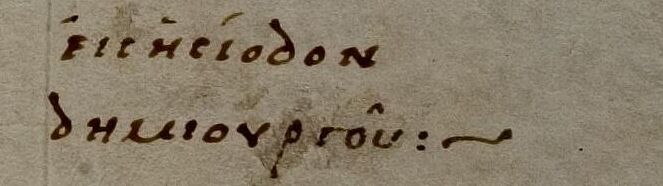 εἰς ἡσίοδον
δημιουργοῦ :~